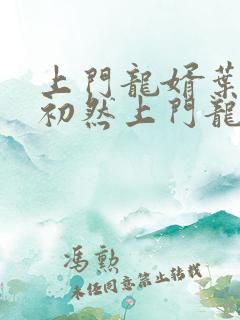 上門龍婿葉
初然上門龍
馮勲
未经同意禁止转载